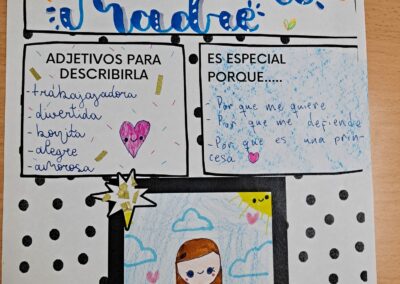 Madre
ADJETIVOS PARA
DESCRIBIRLA
- trabajadora
- divertida
- bonita
- alegre
- amorosa
ES ESPECIAL
PORQUE.....
- Por que me quiere
- Por que me defiende
- Por que es una prin-
cesa